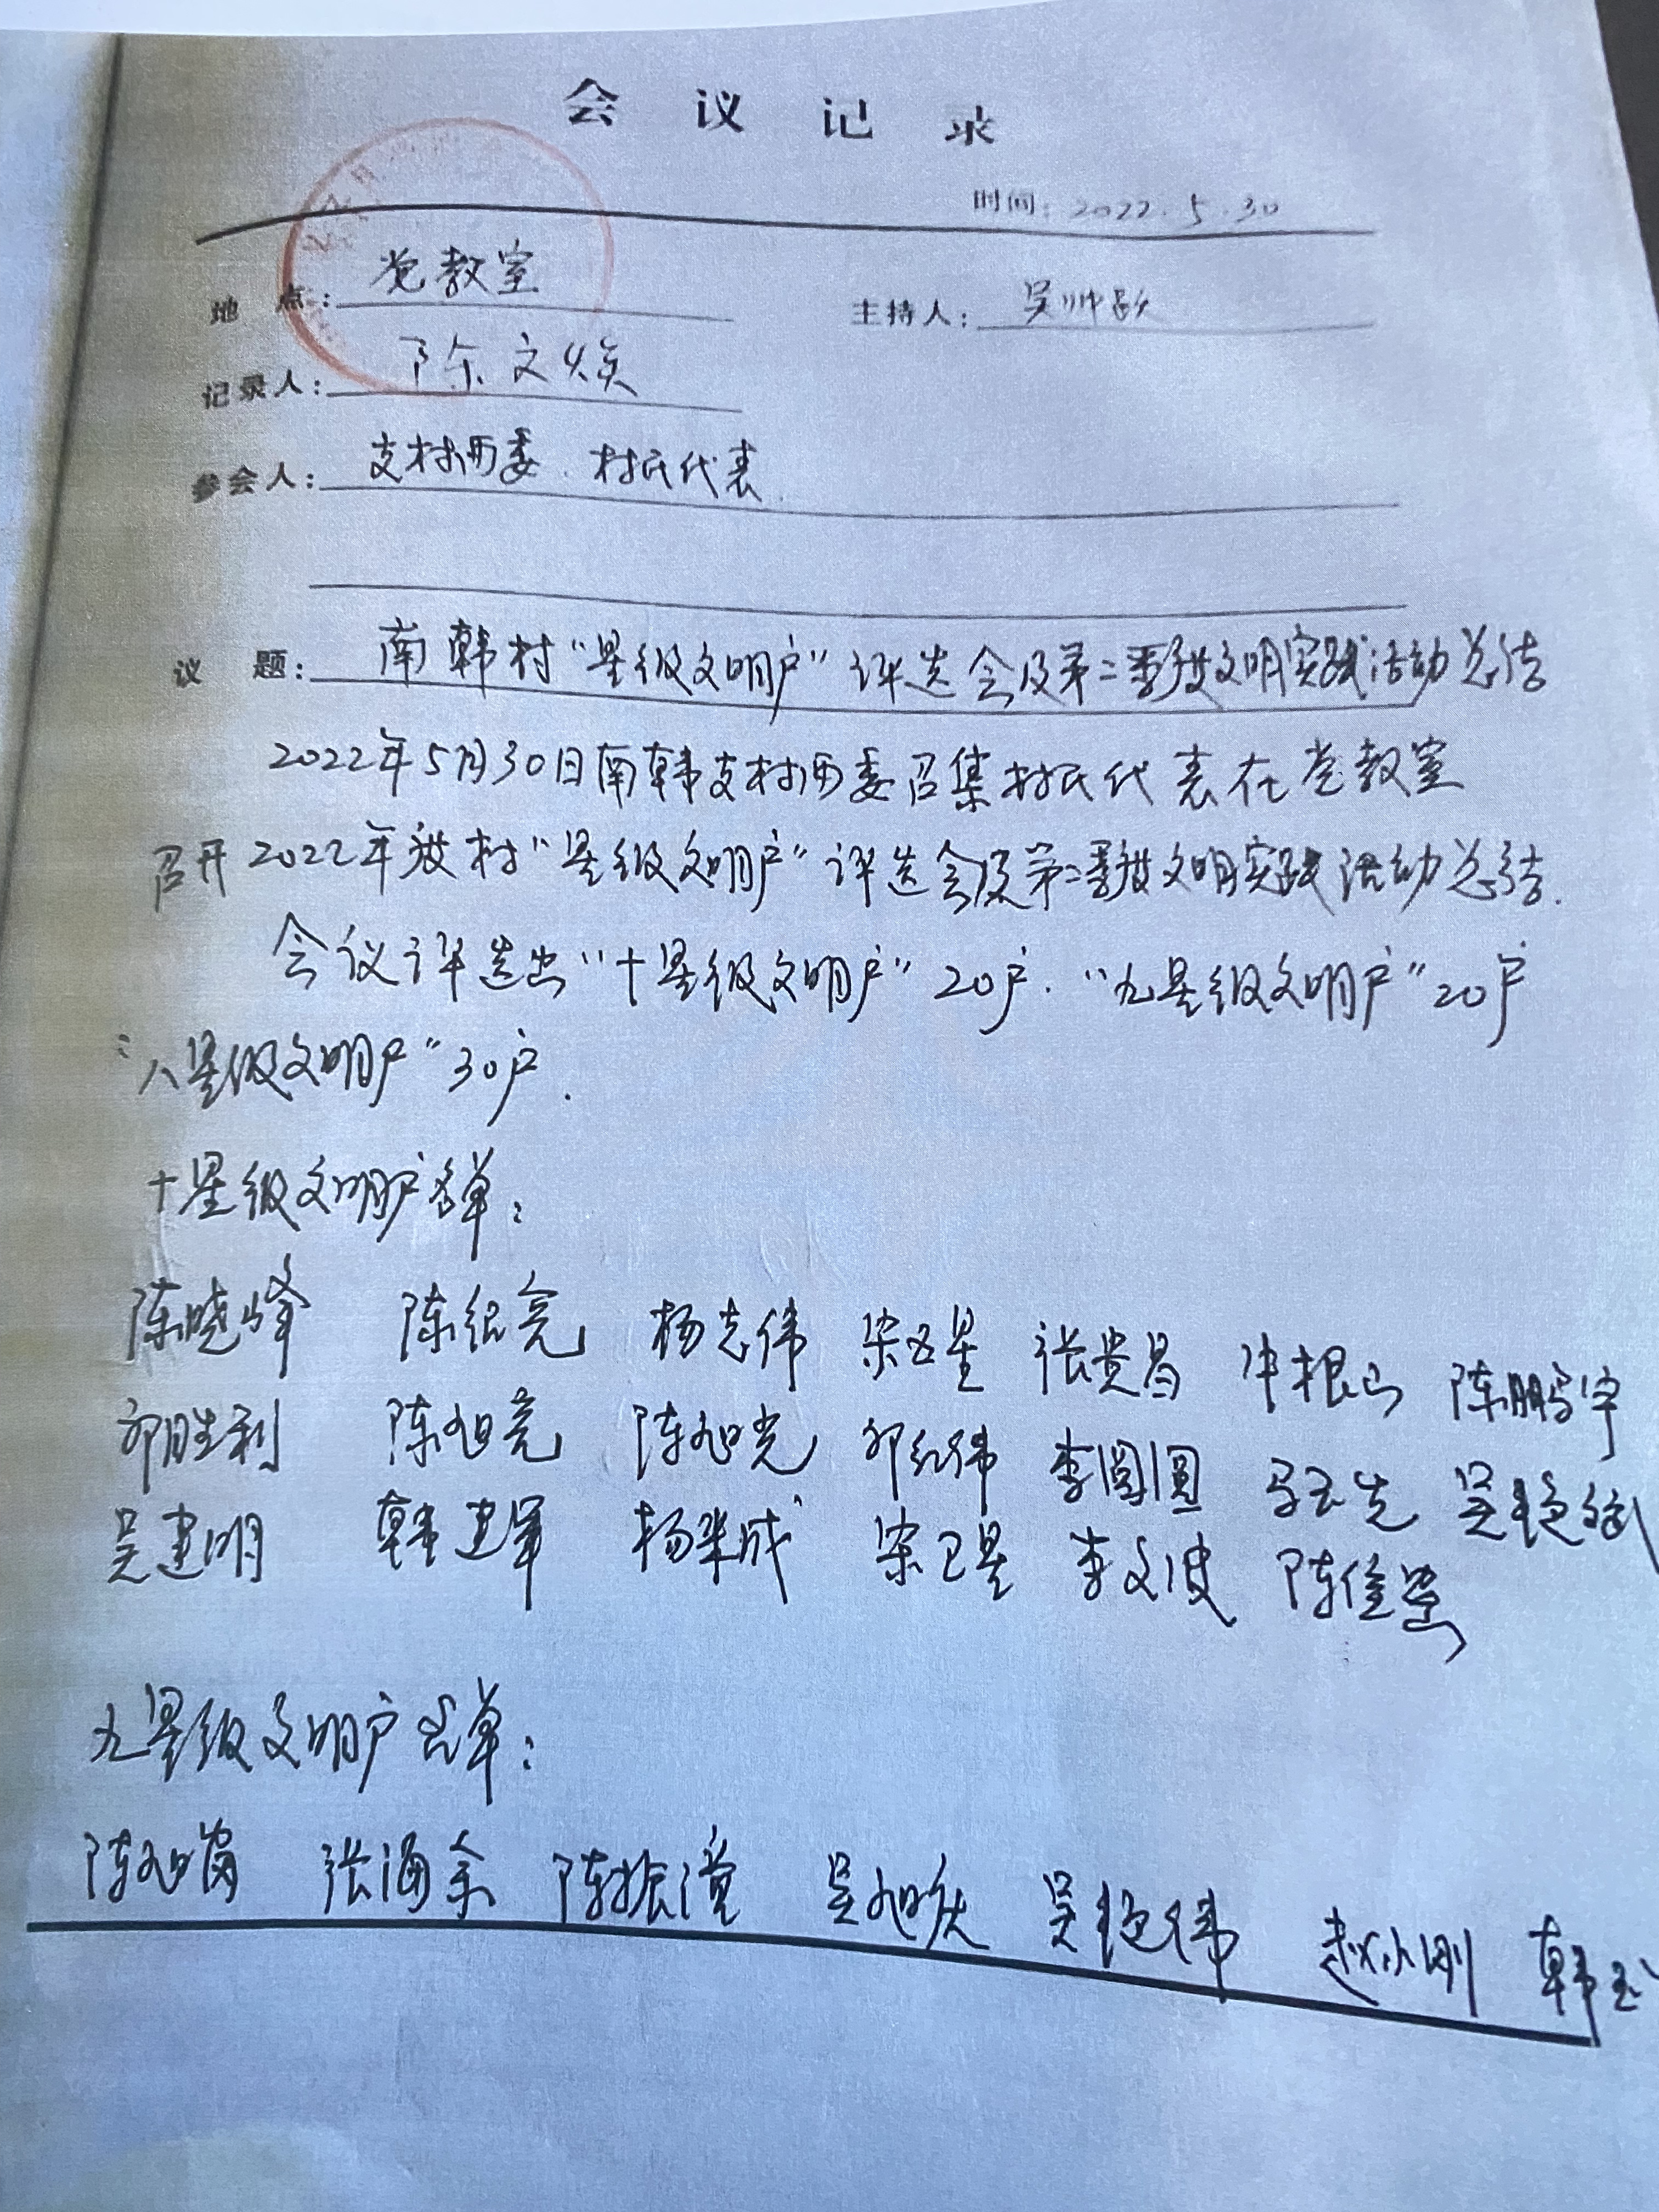 会 议 记 录
时间：2022.5.30
地 点：党教室 主持人：吴帅
记录人：陈文焕
参会人：支村两委．村民代表．
议 题：南韩村“星级文明户”评选会及第二季度文明实践活动总结
2022年5月30日南韩支村两委召集村民代表在党教室
召开2022年度村“星级文明户”评选会及第二季度文明实践活动总结．
会议评选出“十星级文明户”20户．“九星级文明户”20户
“八星级文明户”30户．
十星级文明户名单：
陈晓峰 陈纪亮 杨志伟 宋五星 张贵昌 牛根山 陈鹏宇
邓胜利 陈旭亮 陈旭光 邓红伟 李圆圆 马玉先 吴艳斌
吴建明 韩建军 杨米成 宋卫星 李文波 陈俊
九星级文明户名单：
陈旭岗 张海余 陈振党 吴旭庆 吴艳伟 赵小刚 韩玉